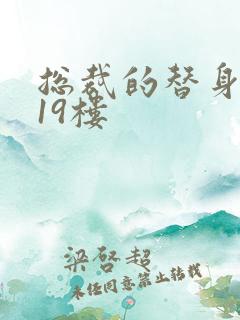 总裁的替身
19楼
梁启超
未经同意禁止转载